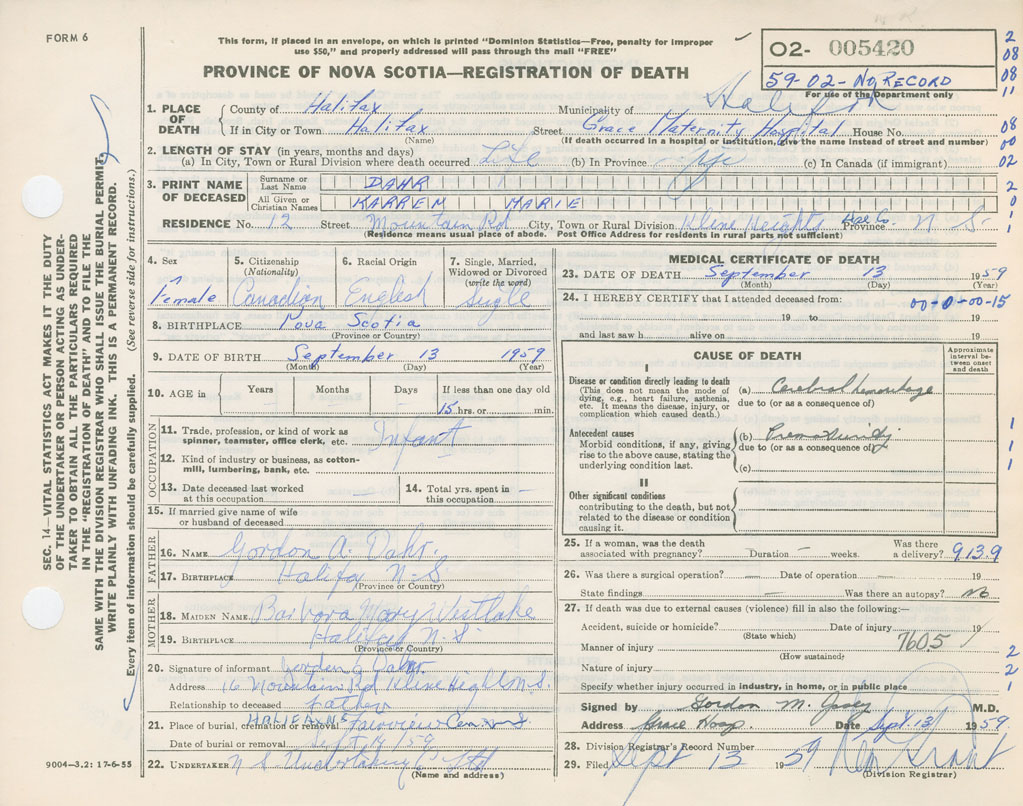 FORM 6
This form, if placed in an envelope, on which is printed "Dominion Statistics—Free, penalty for improper
use $50," and properly addressed will pass through the mail "FREE"
02- 005420
PROVINCE OF NOVA SCOTIA—REGISTRATION OF DEATH
59-02- No RECORD
For use of the Department only
1. PLACE OF DEATH
County of Halifax Municipality of Halifax
If in City or Town Halifax Street Grace Maternity Hospital House No.
(Name) (If death occurred in a hospital or institution, give the name instead of street and number)
2. LENGTH OF STAY (in years, months and days)
(a) In City, Town or Rural Division where death occurred Life (b) In Province (c) In Canada (if immigrant)
3. PRINT NAME OF DECEASED
Surname or Last Name DAHR
All Given or Christian Names KARREM MARIE
RESIDENCE No. 12 Street Mountain Rd City, Town or Rural Division Kline Heights Hfx Co. Province N S
(Residence means usual place of abode. Post Office Address for residents in rural parts not sufficient)
4. Sex Female
5. Citizenship (Nationality) Canadian
6. Racial Origin English
7. Single, Married, Widowed or Divorced (write the word) Single
8. BIRTHPLACE Nova Scotia
(Province or Country)
9. DATE OF BIRTH September 13 1959
(Month) (Day) (Year)
10. AGE in Years Months Days If less than one day old
15 hrs. or min.
OCCUPATION
11. Trade, profession, or kind of work as spinner, teamster, office clerk, etc. Infant
12. Kind of industry or business, as cotton-mill, lumbering, bank, etc.
13. Date deceased last worked at this occupation —
14. Total yrs. spent in this occupation —
15. If married give name of wife or husband of deceased
FATHER
16. NAME Gordon A. Dahr.
17. BIRTHPLACE Halifax N-S
(Province or Country)
MOTHER
18. MAIDEN NAME Barbara Mary Westlake
19. BIRTHPLACE Halifax N.S.
(Province or Country)
20. Signature of informant Gordon Dahr
Address 16 Mountain Rd Kline Hights N.S.
Relationship to deceased father
21. Place of burial, cremation or removal HALIFAX NS Fairview Cem N S
Date of burial or removal Sept 14/59
22. UNDERTAKER N S Undertaking C Ltd
(Name and address)
9004—3.2: 17-6-55
MEDICAL CERTIFICATE OF DEATH
23. DATE OF DEATH September 13 1959
(Month) (Day) (Year)
24. I HEREBY CERTIFY that I attended deceased from: 00-0-00-15
19 to 19
and last saw h alive on 19
CAUSE OF DEATH
Approximate interval between onset and death
I
Disease or condition directly leading to death
(This does not mean the mode of dying, e.g., heart failure, asthenia, etc. It means the disease, injury, or complication which caused death.)
(a) Cerebral hemorrhage
due to (or as a consequence of)
Antecedent causes
Morbid conditions, if any, giving rise to the above cause, stating the underlying condition last.
(b) Prematurity
due to (or as a consequence of)
(c)
II
Other significant conditions
contributing to the death, but not related to the disease or condition causing it.
25. If a woman, was the death associated with pregnancy? — Duration — weeks. Was there a delivery? 913.9
26. Was there a surgical operation? — Date of operation — 19
State findings — Was there an autopsy? No
27. If death was due to external causes (violence) fill in also the following:—
Accident, suicide or homicide? Date of injury 19
(State which)
Manner of injury 7605
(How sustained)
Nature of injury
Specify whether injury occurred in industry, in home, or in public place
Signed by Gordon M. M.D.
Address Grace Hosp Date Sept. 13 1959
28. Division Registrar's Record Number
29. Filed Sept 13 1959 Grant
(Division Registrar)
SEC. 14—VITAL STATISTICS ACT MAKES IT THE DUTY
OF THE UNDERTAKER OR PERSON ACTING AS UNDER-
TAKER TO OBTAIN ALL THE PARTICULARS REQUIRED
IN THE "REGISTRATION OF DEATH" AND TO FILE THE
SAME WITH THE DIVISION REGISTRAR WHO SHALL ISSUE THE BURIAL PERMIT.
WRITE PLAINLY WITH UNFADING INK. THIS IS A PERMANENT RECORD.
Every item of information should be carefully supplied. (See reverse side for instructions.)
2
08
08
11
08
00
02
2
0
1
1
1
1
1
2
2
1